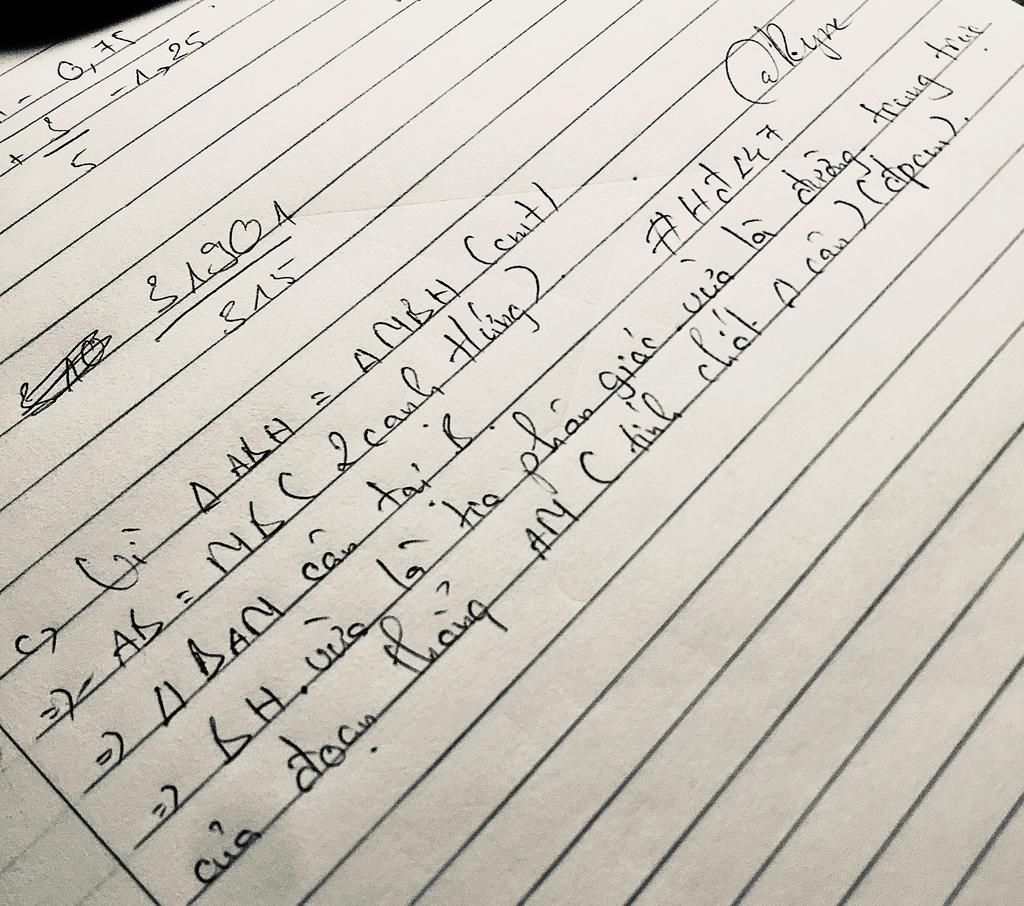 0,75
+ 3/5 - 1,25
31901/315
c) Vì Δ ABH = Δ MBH (cmt)
=> AB = MB (2 cạnh tứng)
=> Δ BAM cân tại B.
=> BH vừa là tia phân giác vừa là đường trung trực
của đoạn thẳng AM (tính chất Δ cân) (đpcm).